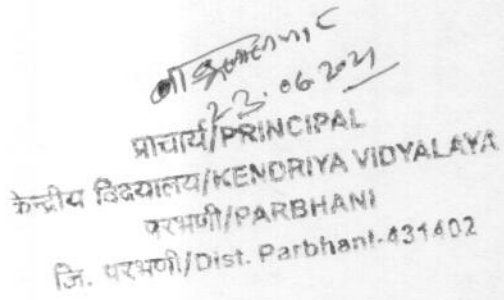 23.06.2021
प्राचार्य/PRINCIPAL
केन्द्रीय विद्यालय/KENDRIYA VIDYALAYA
परभणी/PARBHANI
जि. परभणी/Dist. Parbhani-431402